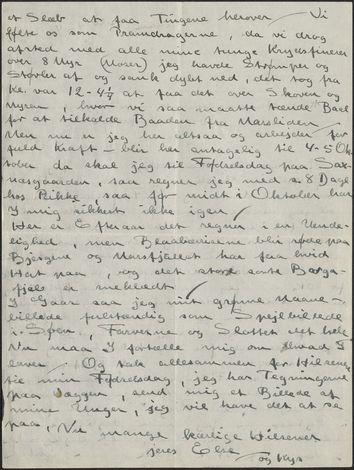 et Slæb at faa Tingene herover Vi
følte os som Pramdragerne, da vi drog
afsted med alle mine tunge Krydsfinerer
over 8 Myr (Moser) jeg havde Strømper og
Støvler af og sank dybt ned, det tog fra
Kl. var 12 - 4½ at faa det over Skoven og
Myren, hvor vi saa maatte tænde Baal
for at tilkalde Baaden fra Marsliden.
Men nu er jeg her altsaa og arbejder for
fuld Kraft - blir her antagelig til 4-5 Ok-
tober da skal jeg til Fødselsdag paa Sax-
næsgaarden, saa regner jeg med ca 8 Dage
hos Rikke, saa før midt i Oktober har
I mig sikkert ikke igen.
Her er Efteraar det regner i en Uende-
lighed, men Blaabærrisene blir røde paa
Bjergene og Marsfjället har faa hvid
Hat paa, og det store sorte Borga-
fjäll er
I Gaar saa jeg mit grønne
billede fuldstændig som Spejlbillede
i Søen, Farverne og Slottet det hele
Nu maa I fortælle mig om hvad I
laver. Og tak allesammen for Hilsenen
til min Fødselsdag, jeg har Tegningerne
paa Væggen, send mig et Billede af
mine Unger, jeg vil have det at se
paa, Nu mange kærlige Hilsener
jeres Else
og